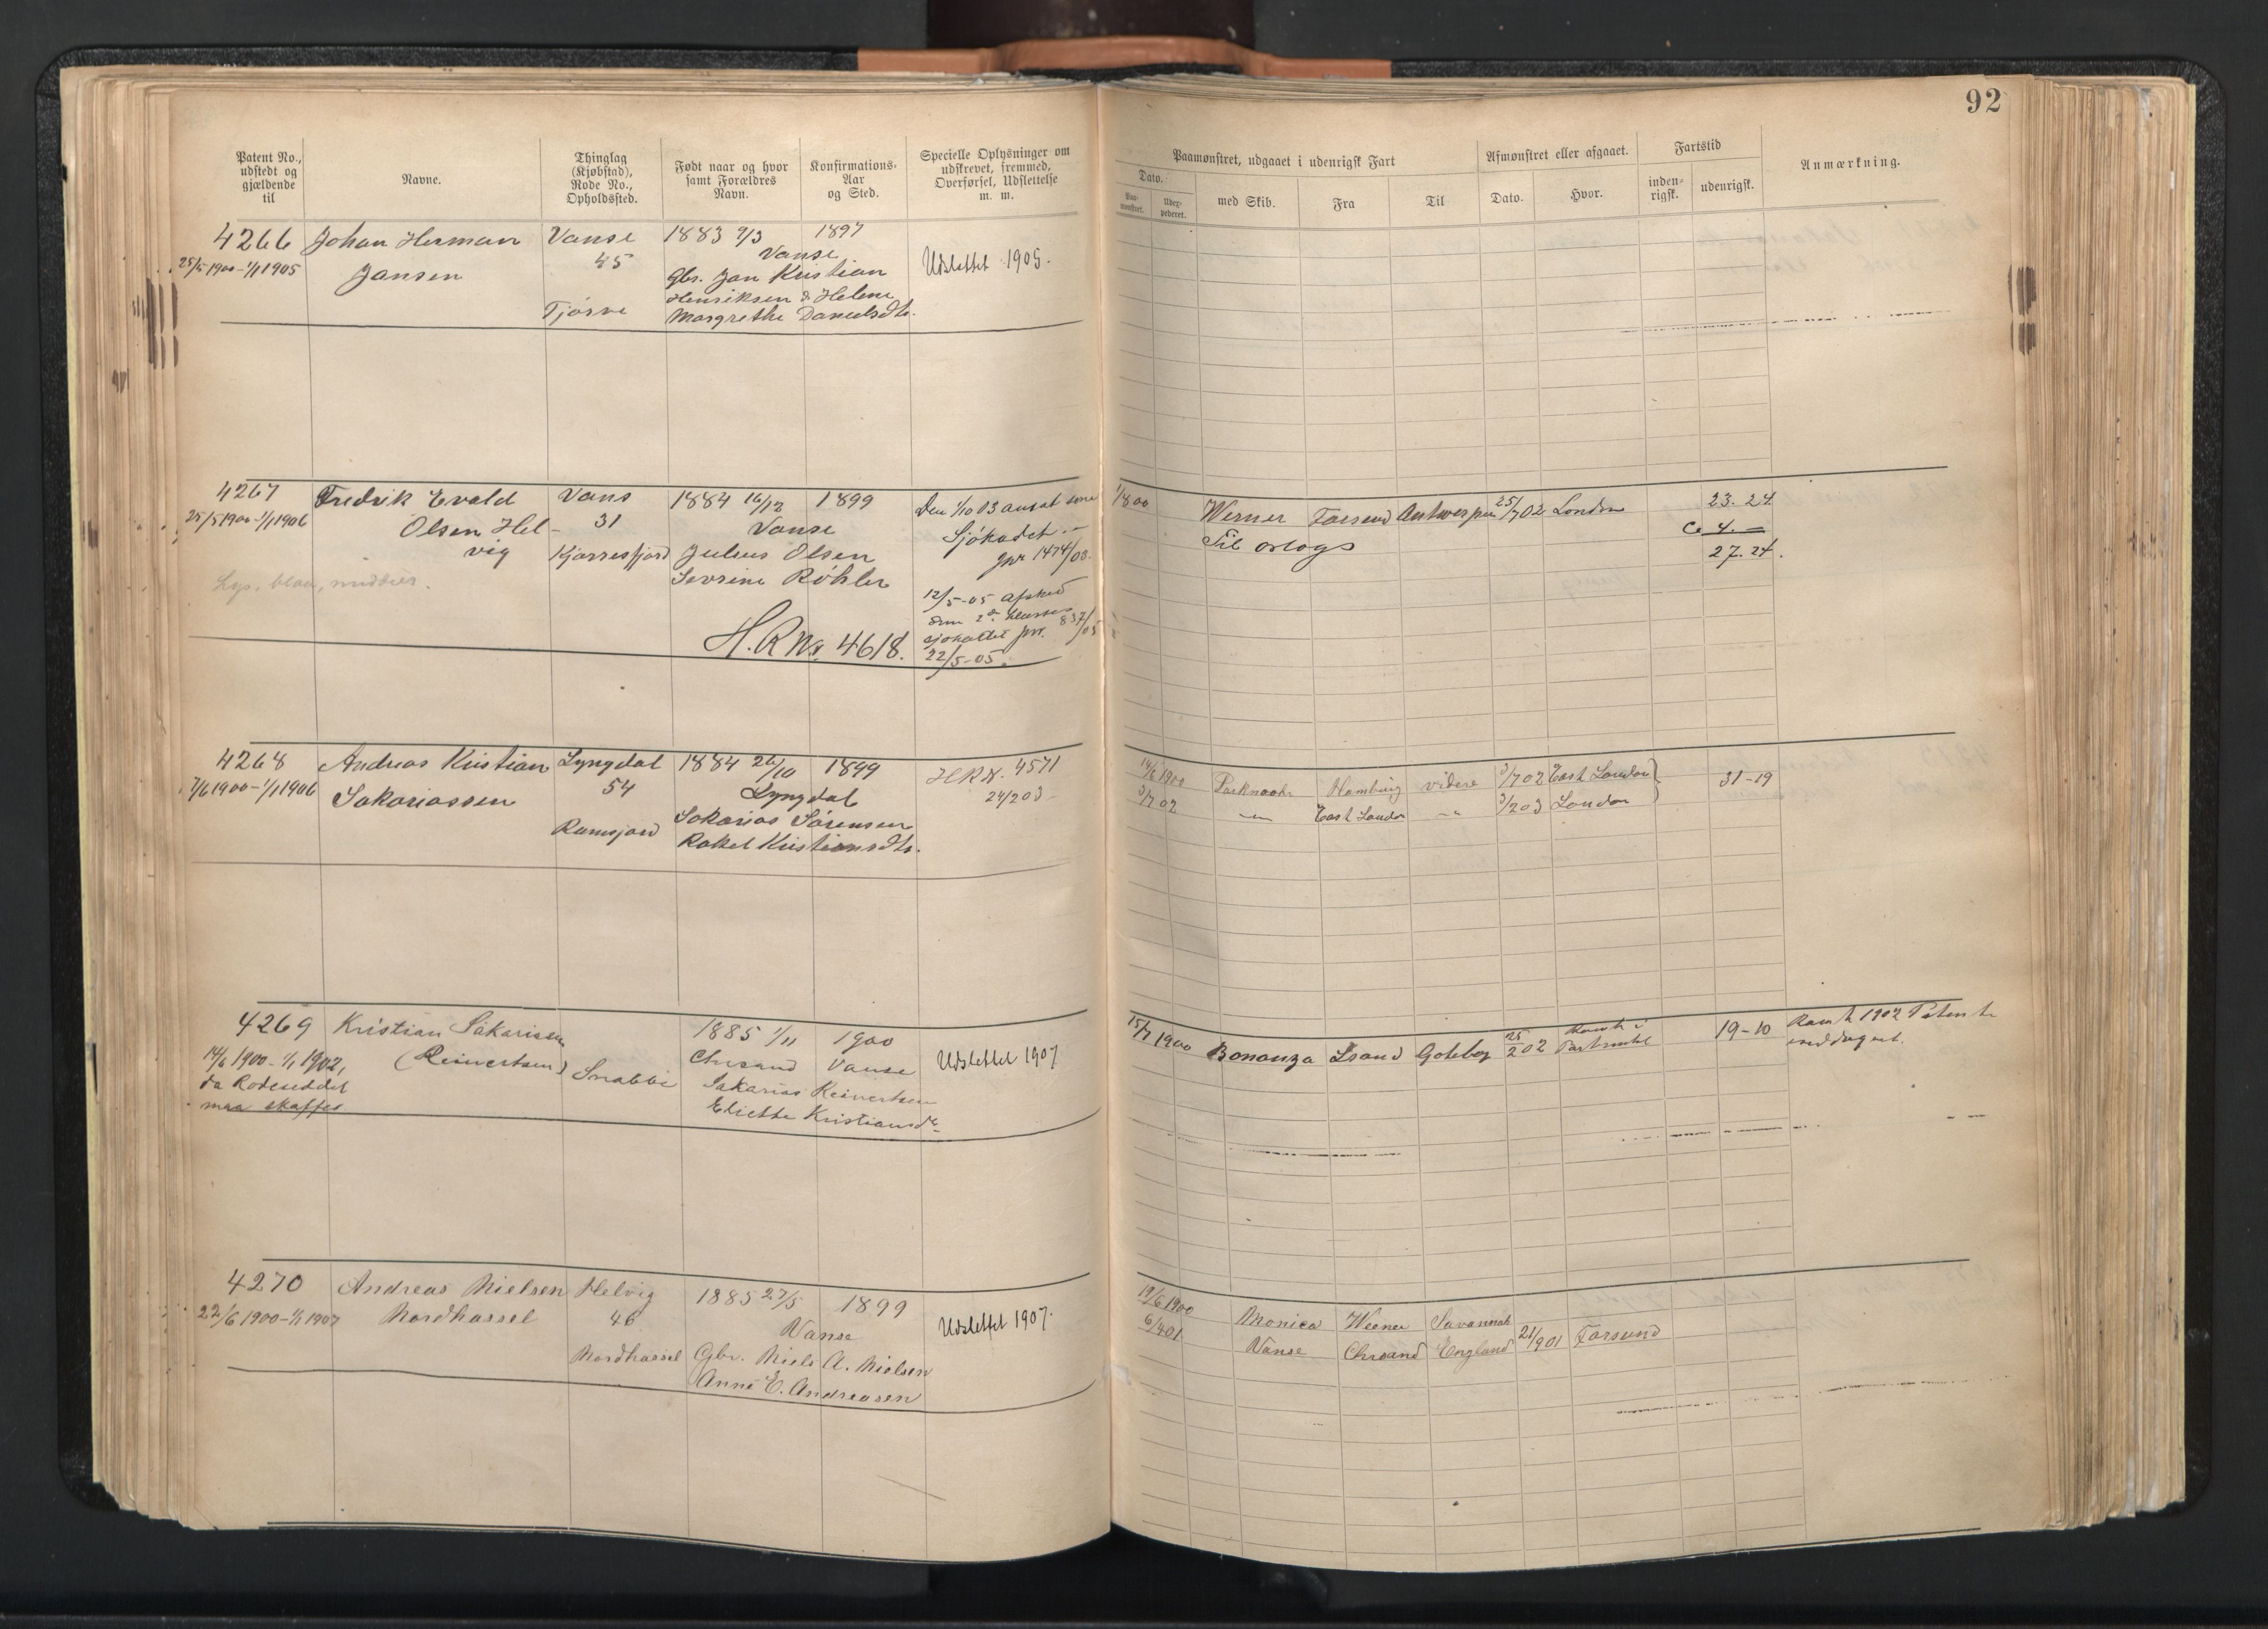 92
Patent No., udstedt og gjældende til
Navne.
Thinglag (Kjøbstad), Rode No., Opholdssted.
Født naar og hvor samt Forældres Navn.
Konfirmations-Aar og Sted.
Specielle Oplysninger om udskrevet, fremmed, Overførsel, Udslettelse m. m.
Paamønstret, udgaaet i udenrigsk Fart
Afmønstret eller afgaaet.
Fartstid
Anmærkning.
Dato.
Paa-mønstret.
Udex-pederet.
med Skib.
Fra
Til
Dato.
Hvor.
inden-rigsk.
udenrigsk.
4266 Johan Herman Vanse 1883 9/3 1897
25/5 1900 - 1/1 1905 Jansen 45 Vanse Udslettet 1905.
Gbr. Jan Kristian
Henriksen & Helene
Tjørve Margrethe Danielsdtr.
4267 Fredrik Evald Vans 1884 16/12 1899 Den 1/10 03 ansat som 1/8 00 Werner Farsund Antwerpen 25/7 02 London 23. 24
25/5 1900 - 1/1 1906 Olsen Hel- 31 Vanse Sjökadet Til orlogs 4. —
vig Kjørresfjord Julius Olsen Jnr 1474/03. 27. 24.
Lys, blaa, middels.
Sevrine Röhler
12/5-05 afsked
som 2den klasses
sjøkadet jnr. 837/05
H. R No. 4618. 22/5-05.
4268 Andreas Kristian Lyngdal 1884 26/10 1899 H R N. 4571 14/6 1900 Hamburg videre 3/7 02 East London 31-19
7/6 1900 - 1/1 1906 Sakariassen 54 Lyngdal 24/2 03 3/7 02 East London 3/2 03 London
Sakarias Sørensen
Ramsjord
Rakel Kristiansdtr.
4269 Kristian Sakarisen 1885 1/11 1900 15/7 1900 Bonanza Lsand Goteborg 25/2 02 19-10 1902 Patent
14/6 1900 - 1/1 1902, (Reinertsen) Snabbe Chrsand Vanse Udslettet 1907 inddraget.
da Rodeseddel Sakarias Reinertsen
maa skaffes Eliethe Kristiansdtr
4270 Andreas Nielsen Helvig 1885 27/5 1899 19/6 1900 Monica Werner Savannah
22/6 1900 - 1/1 1907 Nordhassel 46 Vanse Udslettet 1907. 6/4 01 Vanse Chrsand England 21/9 01 Farsund
Nordhassel Gbr. Niels A. Nielsen
Anne E. Andreasen